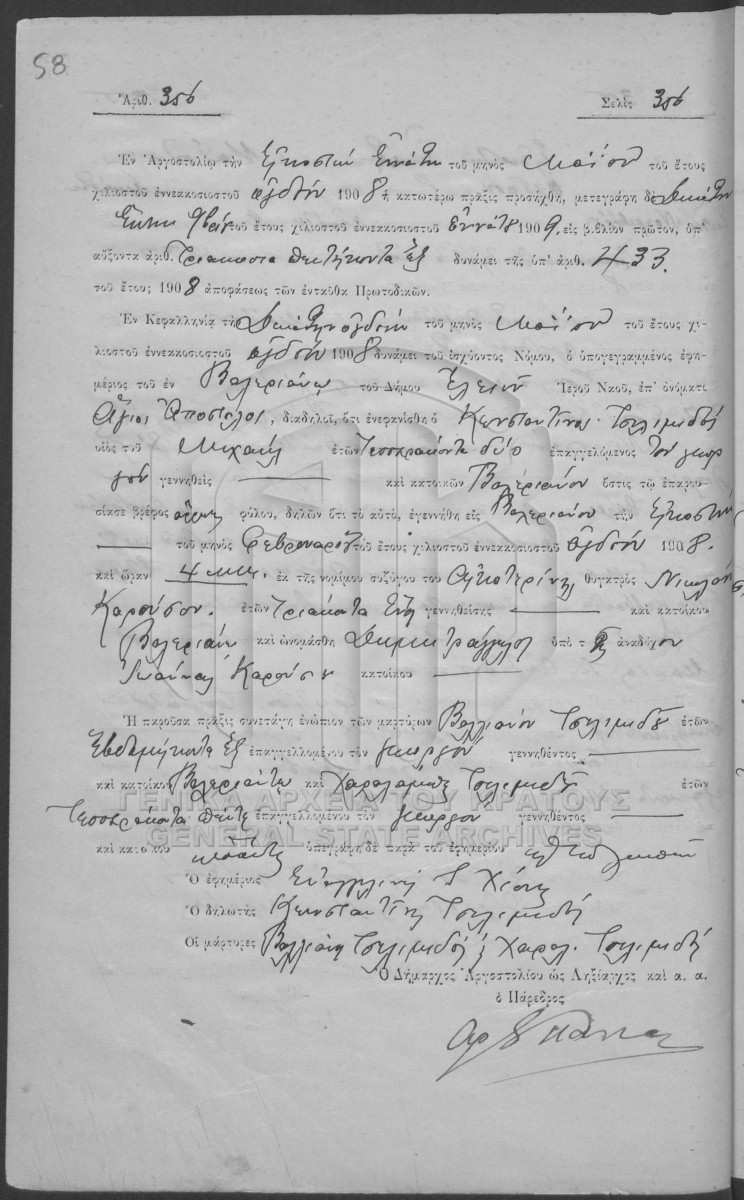 58
Ἀριθ. 356 Σελὶς 356
Ἐν Ἀργοστολίῳ τὴν Εἰκοστὴν Ἐννάτην τοῦ μηνὸς Μαΐου τοῦ ἔτους
χιλιοστοῦ ἐννεακοσιοστοῦ ὀγδόου 1908 ἡ κατωτέρω πρᾶξις προσήχθη, μετεγράφη δὲ Δεκάτην
Ἕκτην τοῦ ἔτους χιλιοστοῦ ἐννεακοσιοστοῦ ἐννάτου 1909, εἰς βιβλίον πρῶτον, ὑπ'
αὔξοντα ἀριθ. Τριακόσια Πεντήκοντα Ἕξ δυνάμει τῆς ὑπ' ἀριθ. 433
τοῦ ἔτους 1908 ἀποφάσεως τῶν ἐνταῦθα Πρωτοδικῶν.
Ἐν Κεφαλληνίᾳ τὴν Δεκάτην ὀγδόην τοῦ μηνὸς Μαΐου τοῦ ἔτους χι-
λιοστοῦ ἐννεακοσιοστοῦ ὀγδόου 1908 δυνάμει τοῦ ἰσχύοντος Νόμου, ὁ ὑπογεγραμμένος ἐφη-
μέριος τοῦ ἐν Βαλεριάνῳ τοῦ Δήμου Ἐλειοῦ Ἱεροῦ Ναοῦ, ἐπ' ὀνόματι
Ἅγιοι Ἀπόστολοι, διαδηλοῖ, ὅτι ἐνεφανίσθη ὁ Κωνσταντῖνος Τσελιμιδὸς
υἱὸς τοῦ Μιχαὴλ ἐτῶν Τεσσαράκοντα δύο ἐπαγγελόμενος τὸν γεωρ
γὸν γεννηθεὶς καὶ κατοικῶν Βαλεριάνον ὅστις τῷ ἐπαρου-
σίασε βρέφος φύλου, δηλῶν ὅτι τὸ αὐτὸ, ἐγεννήθη εἰς Βαλεριάνον τὴν Εἰκοστὴν
τοῦ μηνὸς Φεβρουαρίου τοῦ ἔτους χιλιοστοῦ ἐννεακοσιοστοῦ ὀγδόου 1908.
καὶ ὥραν 4 μ.μ. ἐκ τῆς νομίμου συζύγου του Αἰκατερίνης θυγατρὸς Νικολάου
Καρούσου ἐτῶν Τριάκοντα Ἕξ γεννηθείσης καὶ κατοίκου
Βαλεριάνου καὶ ὠνομάσθη ὑπὸ τῆς ἀναδόχου
Ἰωάννας Καρούσου κατοίκου
Ἡ παροῦσα πρᾶξις συνετάγη ἐνώπιον τῶν μαρτύρων Βαλλιάνου Τσελιμιδοῦ ἐτῶν
Ἑβδομήκοντα Ἕξ ἐπαγγελλομένου τὸν γεωργὸν γεννηθέντος
καὶ κατοίκου Βαλεριάνου καὶ Χαραλάμπη Τσελιμιδοῦ ἐτῶν
Τεσσαράκοντα Πέντε ἐπαγγελλομένου τὸν γεωργὸν γεννηθέντος
καὶ κατοίκου ὑπεγράφη δὲ παρὰ τοῦ ἐφημερίου
Ὁ ἐφημέριος
Ὁ δηλωτὴς Κωνσταντῖνος Τσελιμιδὸς
Οἱ μάρτυρες Βαλλιάνος Τσελιμιδὸς Χαραλ. Τσελιμιδὸς
Ὁ Δήμαρχος Ἀργοστολίου ὡς Ληξίαρχος καὶ α. α.
ὁ Πάρεδρος
ΓΕΝΙΚΑ ΑΡΧΕΙΑ ΤΟΥ ΚΡΑΤΟΥΣ
GENERAL STATE ARCHIVES